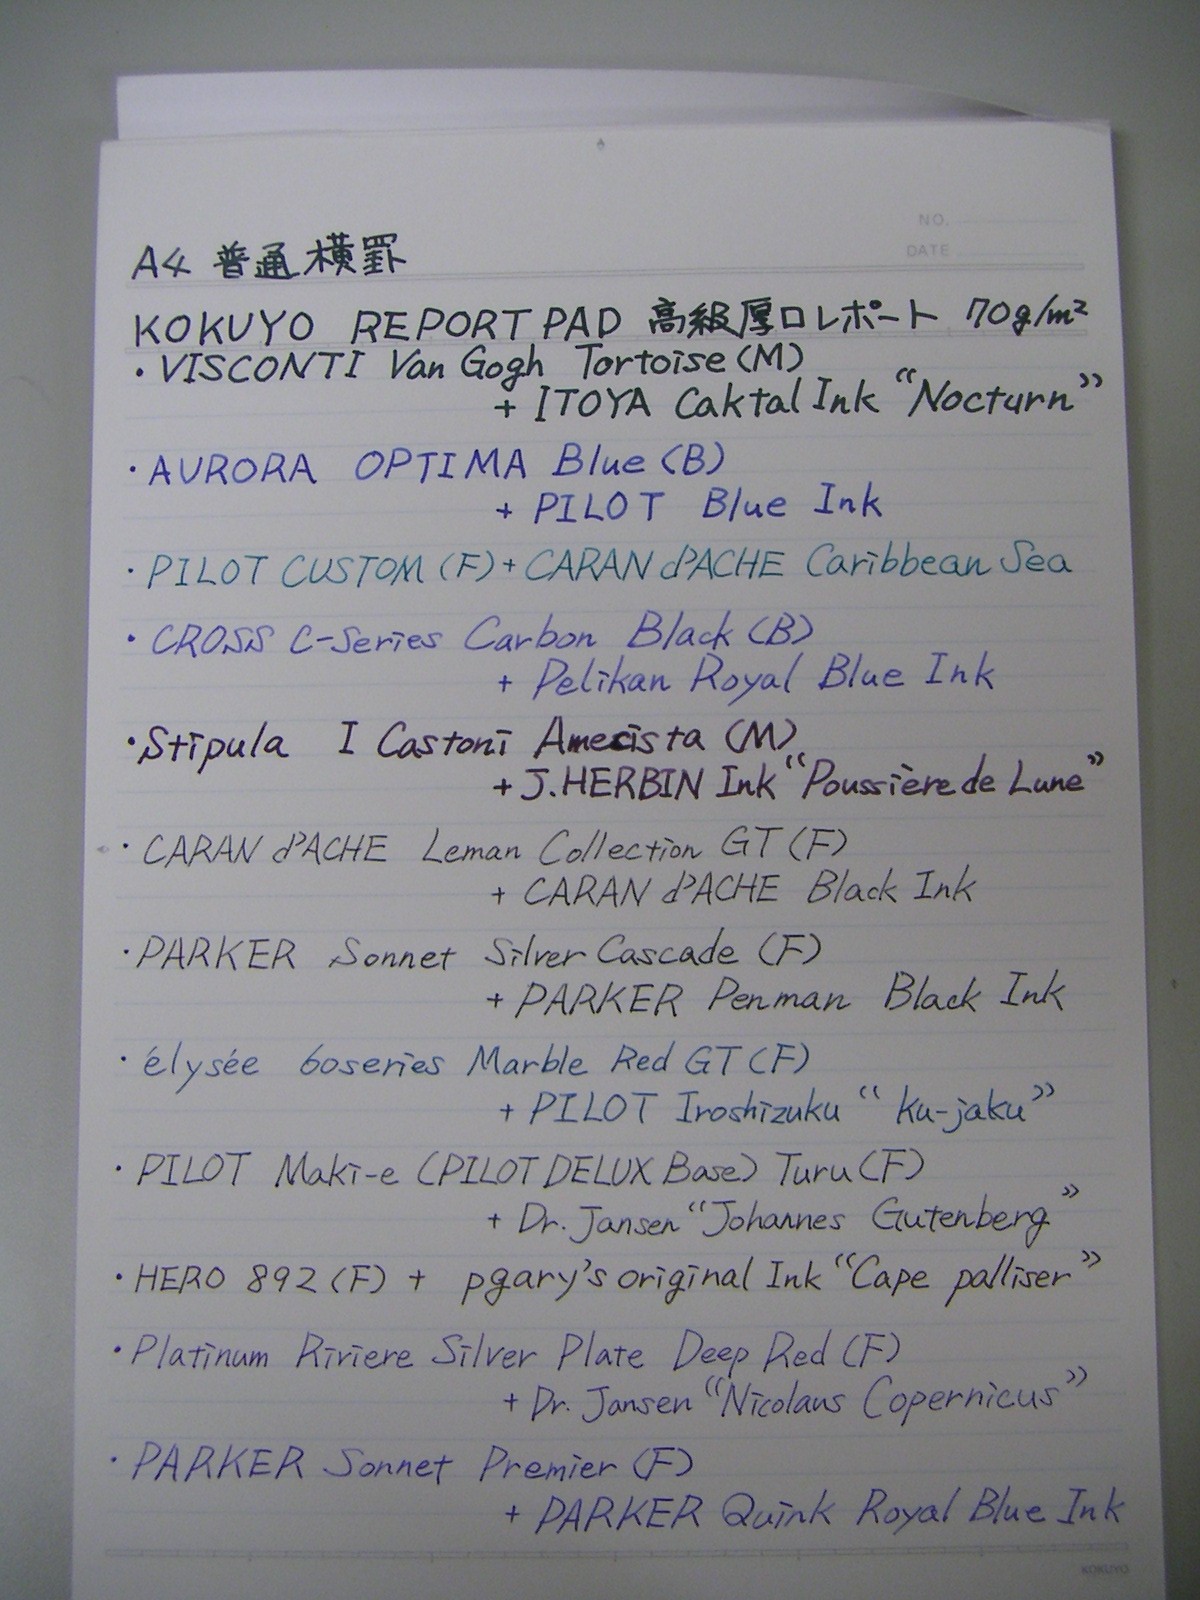 NO.
DATE
A4 普通横罫
KOKUYO REPORT PAD 高級厚口レポート 70g/m²
・VISCONTI Van Gogh Tortoise (M)
+ ITOYA Caktal Ink “Nocturn”
・AURORA OPTIMA Blue (B)
+ PILOT Blue Ink
・PILOT CUSTOM (F) + CARAN d'ACHE Caribbean Sea
・CROSS C-Series Carbon Black (B)
+ Pelikan Royal Blue Ink
・Stipula I Castoni Amecista (M)
+ J.HERBIN Ink “Poussière de Lune”
・CARAN d'ACHE Leman Collection GT (F)
+ CARAN d'ACHE Black Ink
・PARKER Sonnet Silver Cascade (F)
+ PARKER Penman Black Ink
・élysée 60series Marble Red GT (F)
+ PILOT Iroshizuku “ku-jaku”
・PILOT Maki-e (PILOT DELUX Base) Turu (F)
+ Dr. Jansen “Johannes Gutenberg”
・HERO 892 (F) + pgary's original Ink “Cape palliser”
・Platinum Riviere Silver Plate Deep Red (F)
+ Dr. Jansen “Nicolaus Copernicus”
・PARKER Sonnet Premier (F)
+ PARKER Quink Royal Blue Ink
KOKUYO